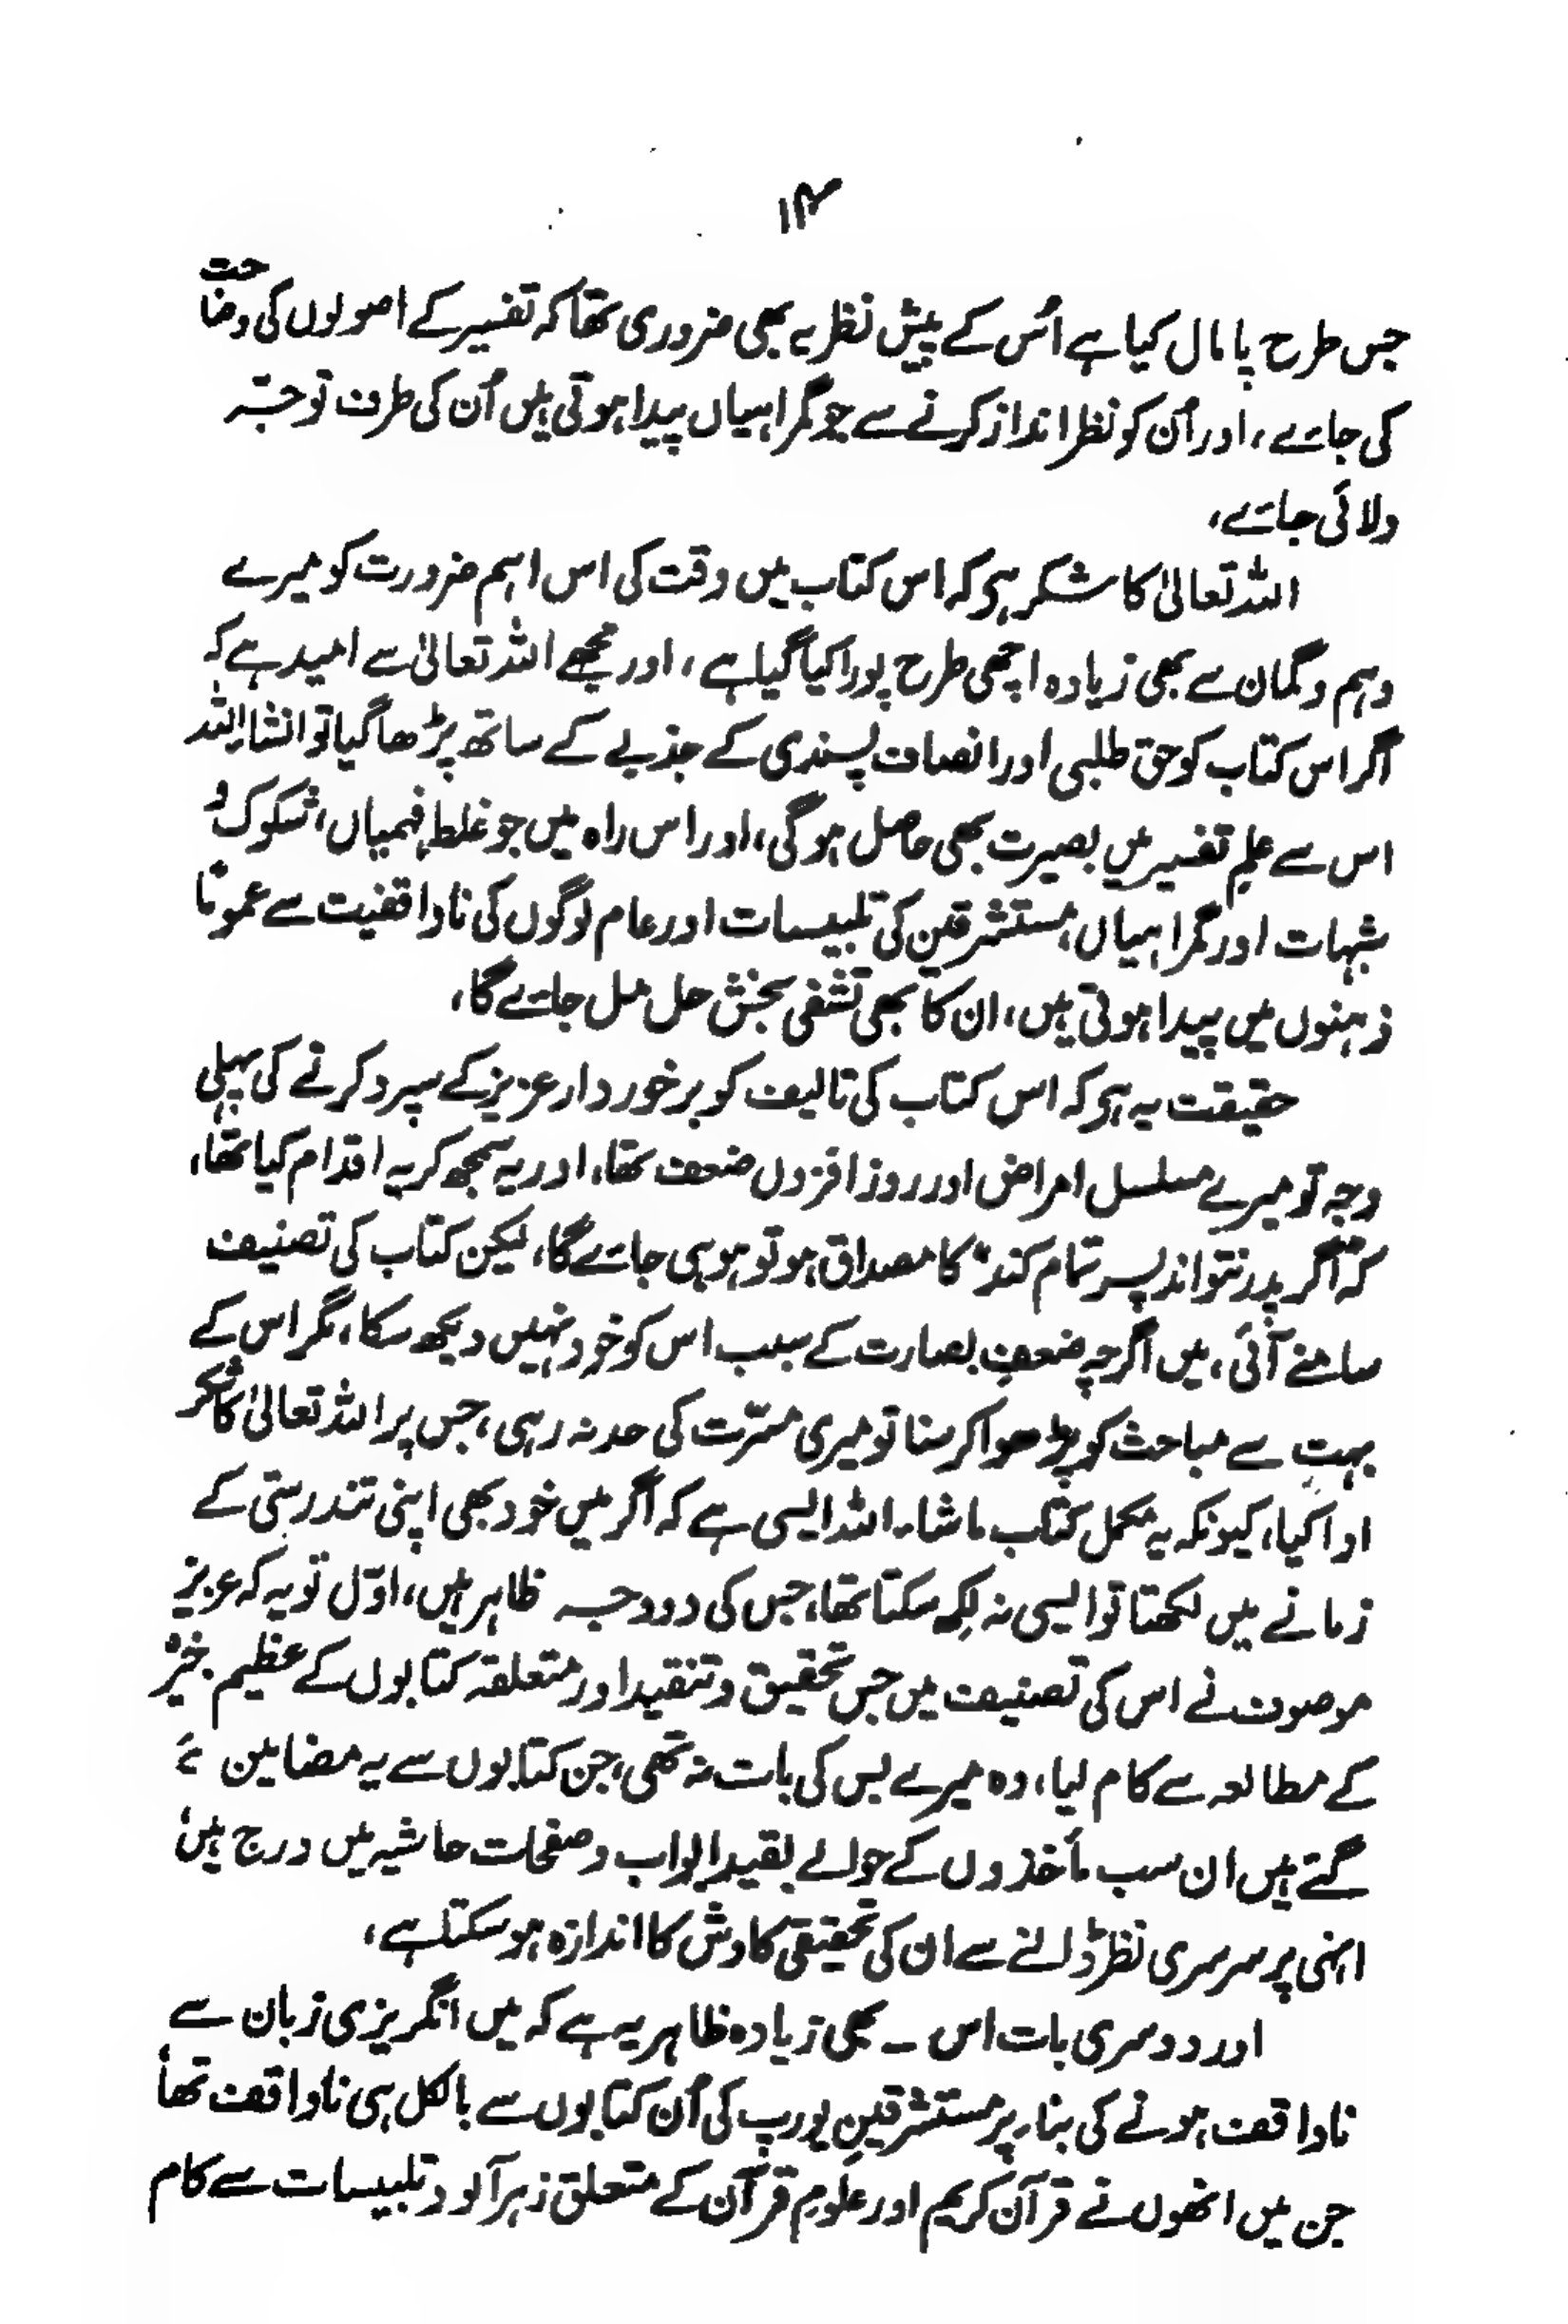 ۱۴
جس طرح پامال کیا ہے اُس کے پیش نظر یہ بھی ضروری تھا کہ تفسیر کے اصولوں کی وضاحت
کی جائے، اور اُن کو نظر انداز کرنے سے جو گمراہیاں پیدا ہوتی ہیں اُن کی طرف توجّہ
دلائی جائے،
اللہ تعالیٰ کا شکر ہی کہ اس کتاب میں وقت کی اس اہم ضرورت کو میرے
وہم و گمان سے بھی زیادہ اچھی طرح پورا کیا گیا ہے، اور مجھے اللہ تعالیٰ سے امید ہے کہ
اگر اس کتاب کو حق طلبی اور انصاف پسندی کے جذبے کے ساتھ پڑھا گیا تو انشاء اللہ
اس سے علمِ تفسیر میں بصیرت بھی حاصل ہوگی، اور اس راہ میں جو غلط فہمیاں، شکوک و
شبہات اور گمراہیاں، مستشرقین کی تلبیسات اور عام لوگوں کی ناواقفیت سے عمومًا
ذہنوں میں پیدا ہوتی ہیں، ان کا بھی تشفی بخش حل مل جائے گا،
حقیقت یہ ہی کہ اس کتاب کی تالیف کو برخوردار عزیز کے سپرد کرنے کی پہلی
وجہ تو میرے مسلسل امراض اور روز افزوں ضعف تھا، اور یہ سمجھ کر یہ اقدام کیا تھا،
کہ "اگر پدر نتواند پسر تمام کند" کا مصداق ہو تو ہو ہی جائے گا، لیکن کتاب کی تصنیف
سامنے آئی، میں اگرچہ ضعفِ بصارت کے سبب اس کو خود نہیں دیکھ سکا، مگر اس کے
بہت سے مباحث کو پڑھوا کر سنا تو میری مسرّت کی حد نہ رہی، جس پر اللہ تعالیٰ کا شکر
ادا کیا، کیونکہ یہ مکمل کتاب ماشاء اللہ ایسی ہے کہ اگر میں خود بھی اپنی تندرستی کے
زمانے میں لکھتا تو ایسی نہ لکھ سکتا تھا، جس کی دو وجہ ظاہر ہیں، اوّل تو یہ کہ عزیز
موصوف نے اس کی تصنیف میں جس تحقیق و تنقید اور متعلقہ کتابوں کے عظیم ذخیرہ
کے مطالعہ سے کام لیا، وہ میرے بس کی بات نہ تھی، جن کتابوں سے یہ مضامین لئے
گئے ہیں ان سب مأخذوں کے حوالے بقید ابواب و صفحات حاشیہ میں درج ہیں،
انہی پر سرسری نظر ڈالنے سے ان کی تحقیقی کاوش کا اندازہ ہو سکتا ہے،
اور دوسری بات اس سے بھی زیادہ ظاہر یہ ہے کہ میں انگریزی زبان سے
ناواقف ہونے کی بناء پر مستشرقینِ یورپ کی اُن کتابوں سے بالکل ہی ناواقف تھا،
جن میں انھوں نے قرآن کریم اور علومِ قرآن کے متعلق زہر آلود تلبیسات سے کام